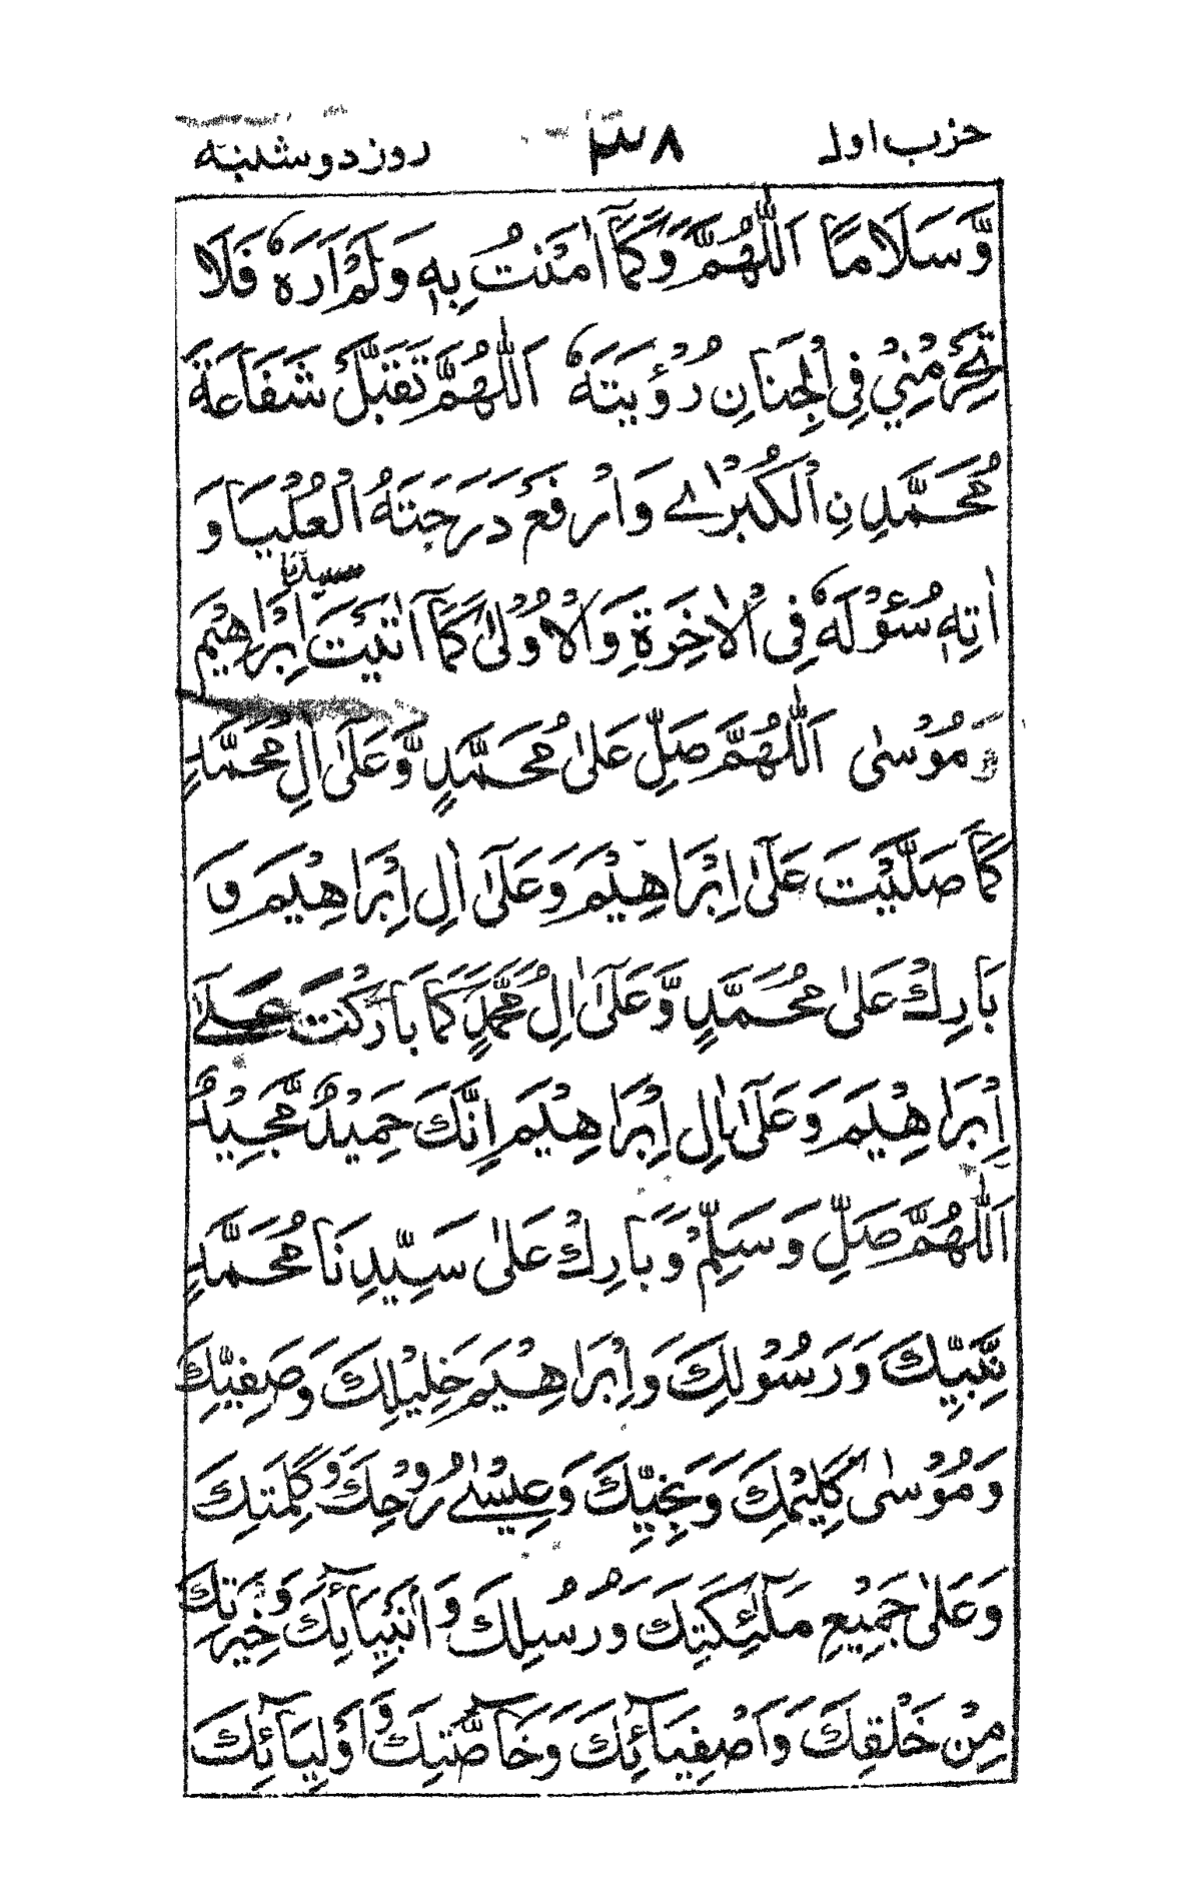 حزب اول ٣٨ روز دو شنبه
وَّسَلَامًا اَللّٰهُمَّ وَكَمَآ اٰمَنْتُ بِهٖ وَلَمْ اَرَهٗ فَلَا
تَحْرِمْنِيْ فِى الْجِنَانِ رُؤْيَتَهٗ اَللّٰهُمَّ تَقَبَّلْ شَفَاعَةَ
مُحَمَّدِنِ الْكُبْرٰے وَارْفَعْ دَرَجَتَهُ الْعُلْيَا وَ
اٰتِهٖ سُؤْلَهٗ فِى الْاٰخِرَةِ وَالْاُوْلٰى كَمَآ اٰتَيْتَ سيدنا اِبْرَاهِيْمَ
وَ مُوْسٰى اَللّٰهُمَّ صَلِّ عَلٰى مُحَمَّدٍ وَّعَلٰٓى اٰلِ مُحَمَّدٍ
كَمَا صَلَّيْتَ عَلٰٓى اِبْرَاهِيْمَ وَعَلٰٓى اٰلِ اِبْرَاهِيْمَ وَ
بَارِكْ عَلٰى مُحَمَّدٍ وَّعَلٰٓى اٰلِ مُحَمَّدٍ كَمَا بَارَكْتَ عَلٰٓى
اِبْرَاهِيْمَ وَعَلٰٓى اٰلِ اِبْرَاهِيْمَ اِنَّكَ حَمِيْدٌ مَّجِيْدٌ
اَللّٰهُمَّ صَلِّ وَسَلِّمْ وَبَارِكْ عَلٰى سَيِّدِنَا مُحَمَّدٍ
نَّبِيِّكَ وَرَسُوْلِكَ وَاِبْرَاهِيْمَ خَلِيْلِكَ وَصَفِيِّكَ
وَمُوْسٰى كَلِيْمِكَ وَنَجِيِّكَ وَعِيْسٰے رُوْحِكَ وَكَلِمَتِكَ
وَعَلٰى جَمِيْعِ مَلٰٓئِكَتِكَ وَرُسُلِكَ وَاَنْبِيَآئِكَ وَخِيَرَتِكَ
مِنْ خَلْقِكَ وَاَصْفِيَآئِكَ وَخَآصَّتِكَ وَاَوْلِيَآئِكَ